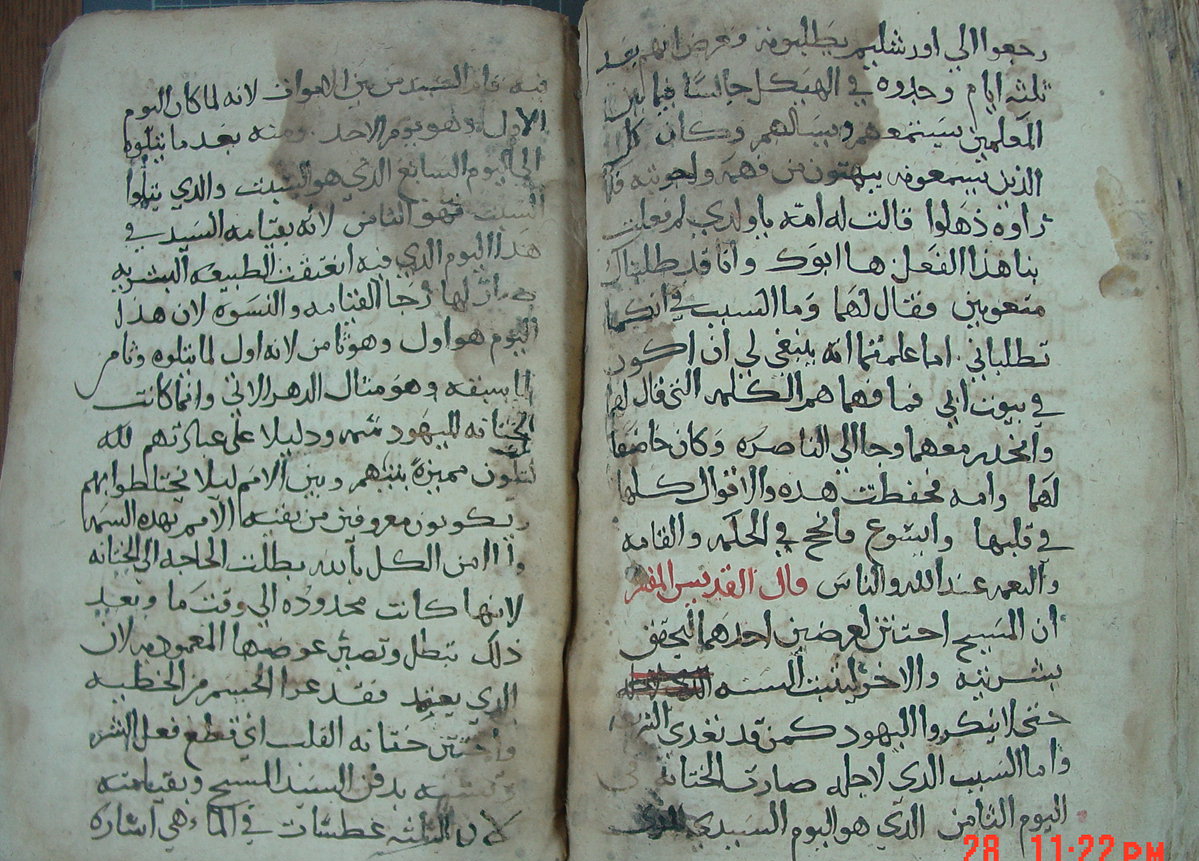 رجعوا الي اورشليم يطلبونه وعرض انهم بعد
ثلثه ايام وجدوه في الهيكل جالسًا فيما بين
المعلمين يستمعهم ويسالهم وكان كل
الذين يسمعونه يبهتون من فهمه واجوبته فلما
راوه ذهلوا قالت له امه ياولدي لم فعلت
بنا هذا الفعل ها ابوك وانا قد طلبناك
متعوبين فقال لهما وما السبب في انكما
تطلباني اما علمتما انه ينبغي لي ان اكون
في بيوت ابي فما فهما هم الكلمه التي قال لهم
وانحدر معهما وجا الي الناصره وكان خاضعًا
لهما وامه محفظت هذه والاقوال كلها
في قلبها وايسوع فانجح في الحكمه والقامه
والنعمه عند الله والناس قال القديس المفسر
ان المسيح اختتن لعرضين احدهما ليحقق
بشريته والاخر ليثبت السنه
حتي لا ينكروا اليهود كمن قد تعدي الشريعه
واما السبب الذي لاجله صارت الختانه في
اليوم الثامن الذي هو اليوم السيدي
فيه قام السيد من بين الاموات لانه لما كان اليوم
الاول وهو يوم الاحد ومنه بعد ما يتلوه
الي اليوم السابع الذي هو السبت والذي يتلوا
السبت فهو الثامن لانه بقيامه السيد في
هذا اليوم الذي فيه انعتقت الطبيعه البشريه
صار لها رجا القيامه والنسوه لان هذا
اليوم هو اول وهو ثامن لانه اول لما يتلوه وثامن
لما سبقه وهو مثال الدهر الاتي وانما كانت
الختانه لليهود سمه ودليلا علي عبادتهم لله
لتكون مميزةً بينهم وبين الامم ليلا يختلطوا بهم
ويكونون معروفين من بقية الامم بهذه السمه
ولما امن الكل بالله بطلت الحاجه الي الختانه
لانها كانت محدوده الي وقت ما وبعد
ذلك تبطل وتصير عوضها المعموديه لان
الذي يعتمد فقد عرا الجسم من الخطيه
واختتن ختانه القلب اي قطع فعل الشر
وتشبه بدفن السيد المسيح وبقيامته
لان الثلثه غطسات في الماء هي اشاره
28 11:22 PM